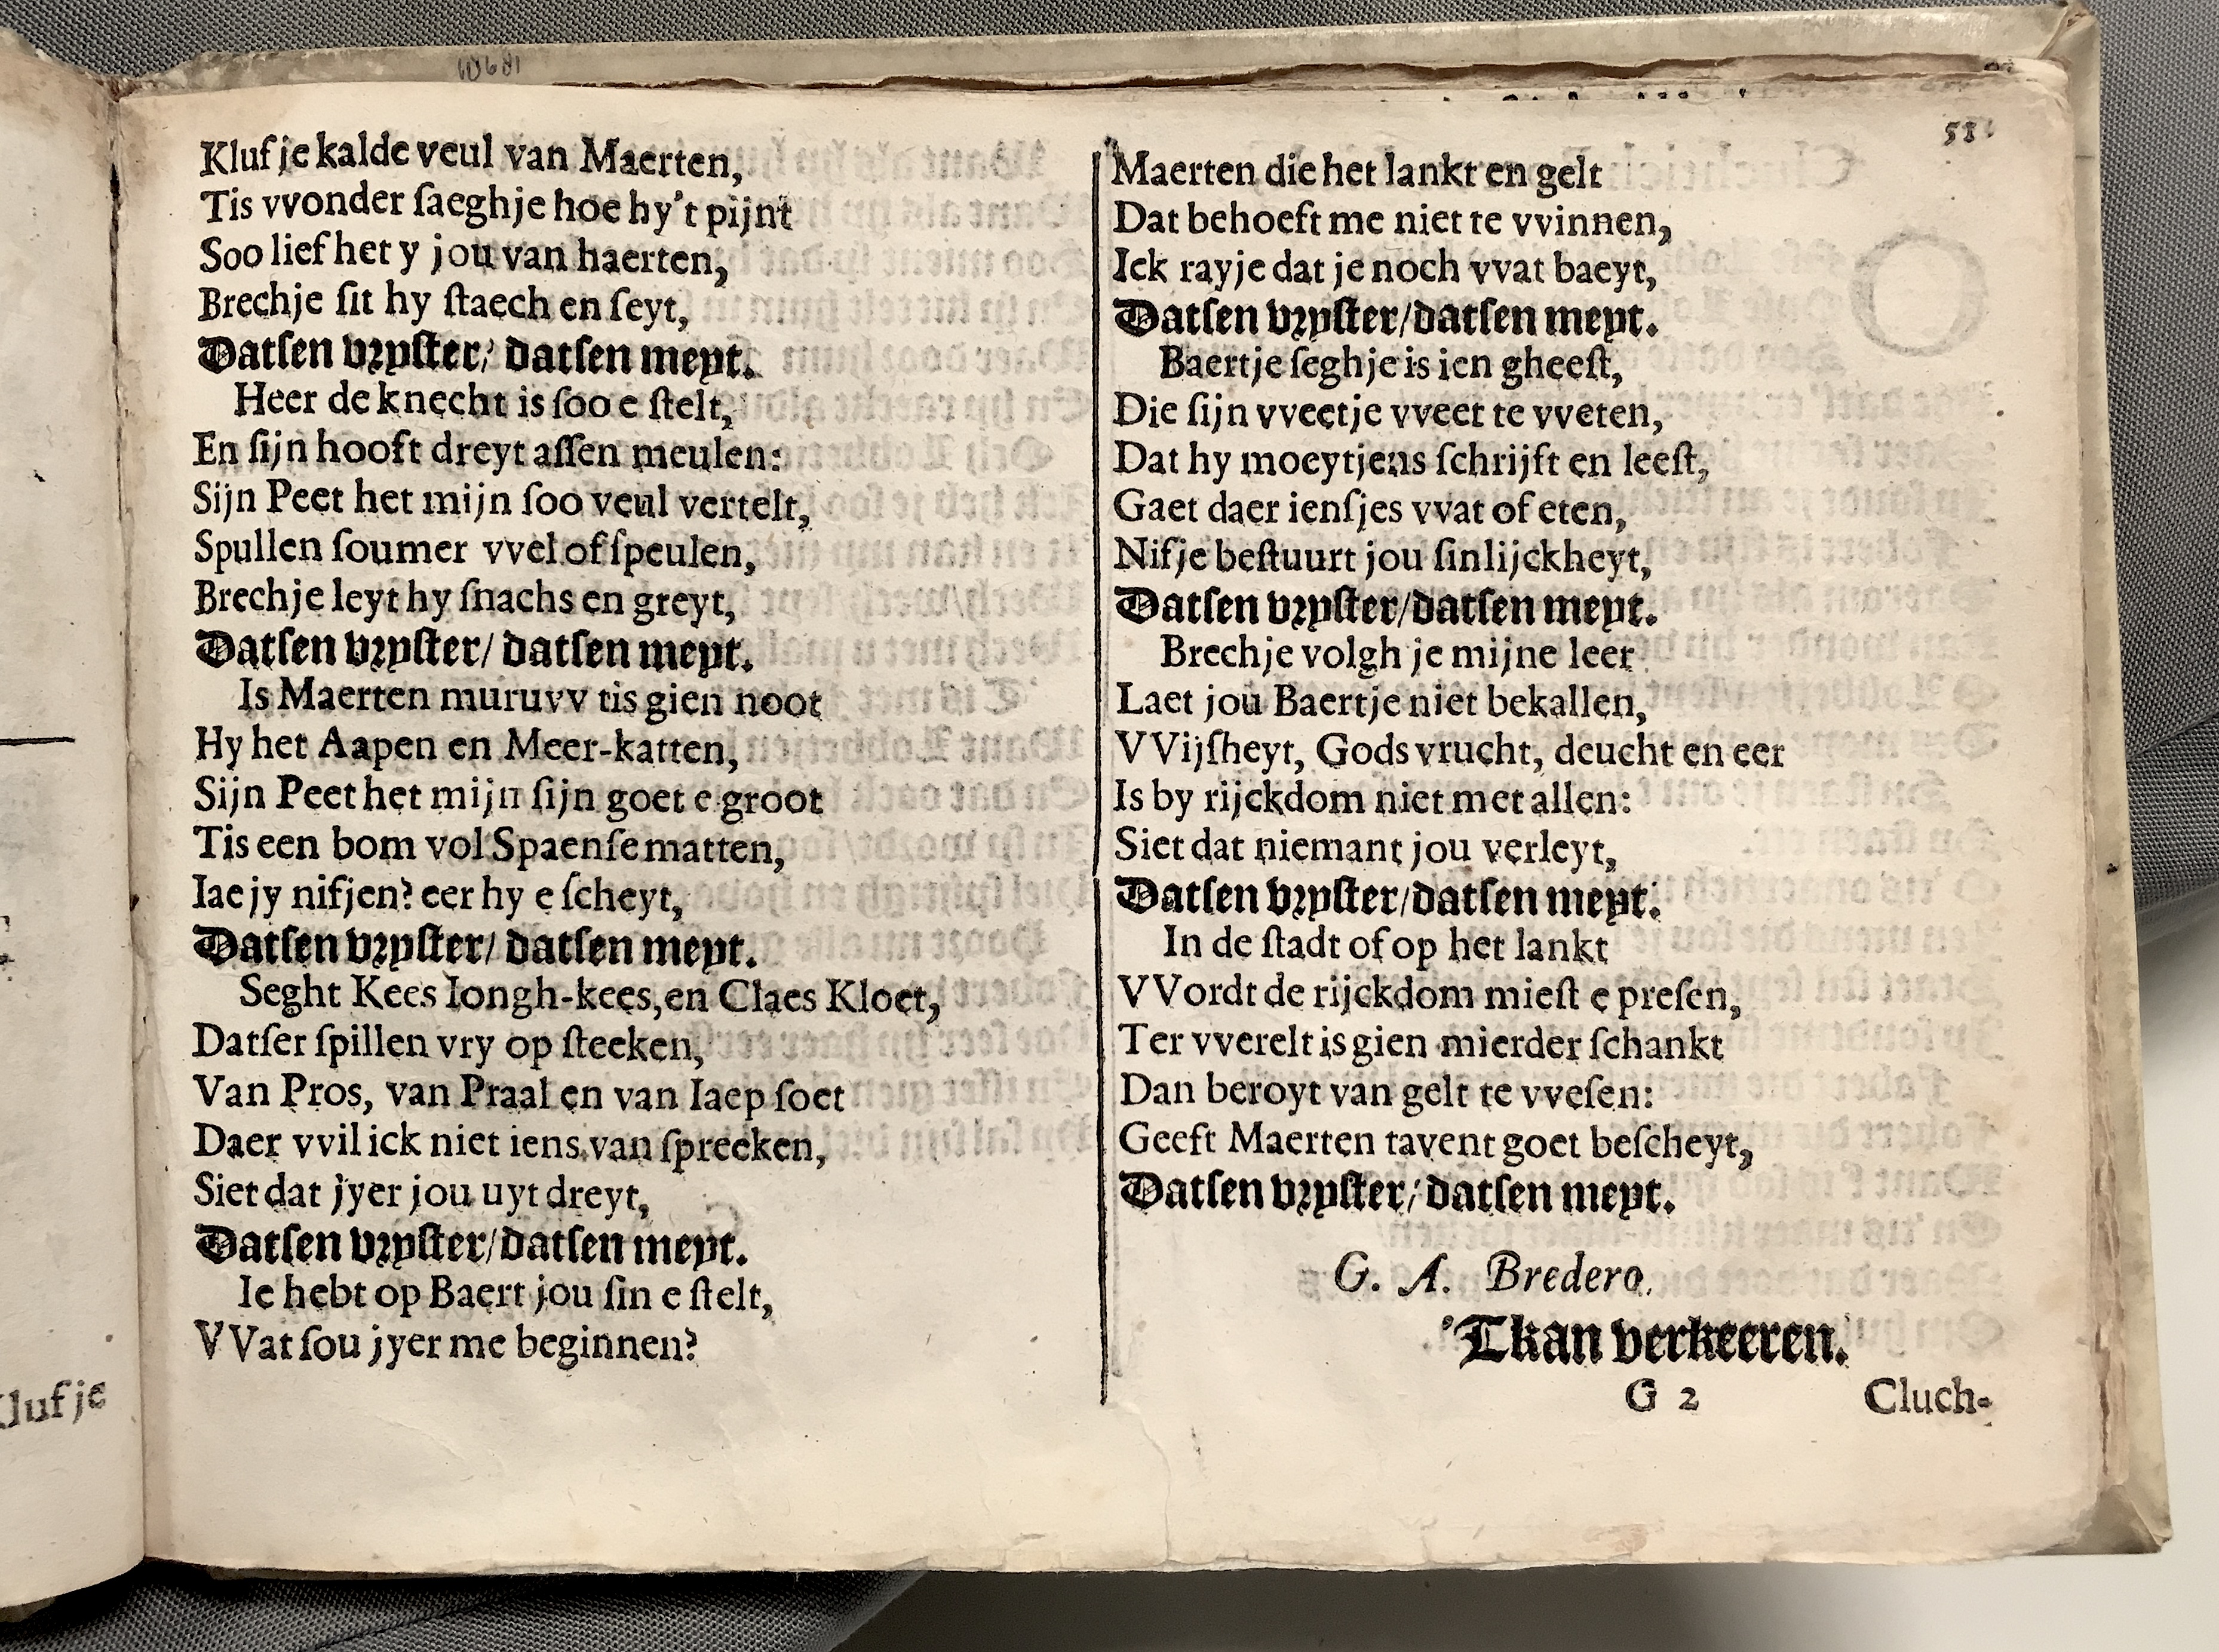 Klufje
51
Klufje kalde veul van Maerten,
Tis vvonder ſaeghje hoe hy't pijnt
Soo lief het y jou van haerten,
Brechje ſit hy ſtaech en ſeyt,
Datſen vryſter/ datſen meyt.
Heer de knecht is ſoo e ſtelt,
En ſijn hooft dreyt aſſen meulen:
Sijn Peet het mijn ſoo veul vertelt,
Spullen ſoumer vvel of ſpeulen,
Brechje leyt hy ſnachs en greyt,
Datſen vryſter/ datſen meyt.
Is Maerten muruvv tis gien noot
Hy het Aapen en Meer-katten,
Sijn Peet het mijn ſijn goet e groot
Tis een bom vol Spaenſe matten,
Iae jy nifjen? eer hy e ſcheyt,
Datſen vryſter/ datſen meyt.
Seght Kees Iongh-kees, en Claes Kloet,
Datſer ſpillen vry op ſteeken,
Van Pros, van Praal en van Iaep ſoet
Daer vvil ick niet iens van ſpreeken,
Siet dat jyer jou uyt dreyt,
Datſen vryſter/ datſen meyt.
Ie hebt op Baert jou ſin e ſtelt,
VVat ſou jyer me beginnen?
Maerten die het lankt en gelt
Dat behoeft me niet te vvinnen,
Ick rayje dat je noch vvat baeyt,
Datſen vryſter/ datſen meyt.
Baertje ſeghje is ien gheeſt,
Die ſijn vveetje vveet te vveten,
Dat hy moeytjens ſchrijft en leeſt,
Gaet daer ienſjes vvat of eten,
Nifje beſtuurt jou ſinlijckheyt,
Datſen vryſter/ datſen meyt.
Brechje volgh je mijne leer
Laet jou Baertje niet bekallen,
VVijſheyt, Gods vrucht, deucht en eer
Is by rijckdom niet met allen:
Siet dat niemant jou verleyt,
Datſen vryſter/ datſen meyt.
In de ſtadt of op het lankt
VVordt de rijckdom mieſt e preſen,
Ter vverelt is gien mierder ſchankt
Dan beroyt van gelt te vveſen:
Geeft Maerten tavent goet beſcheyt,
Datſen vryſter/ datſen meyt.
G. A. Bredero.
'Tkan verkeeren.
G 2 Cluch-